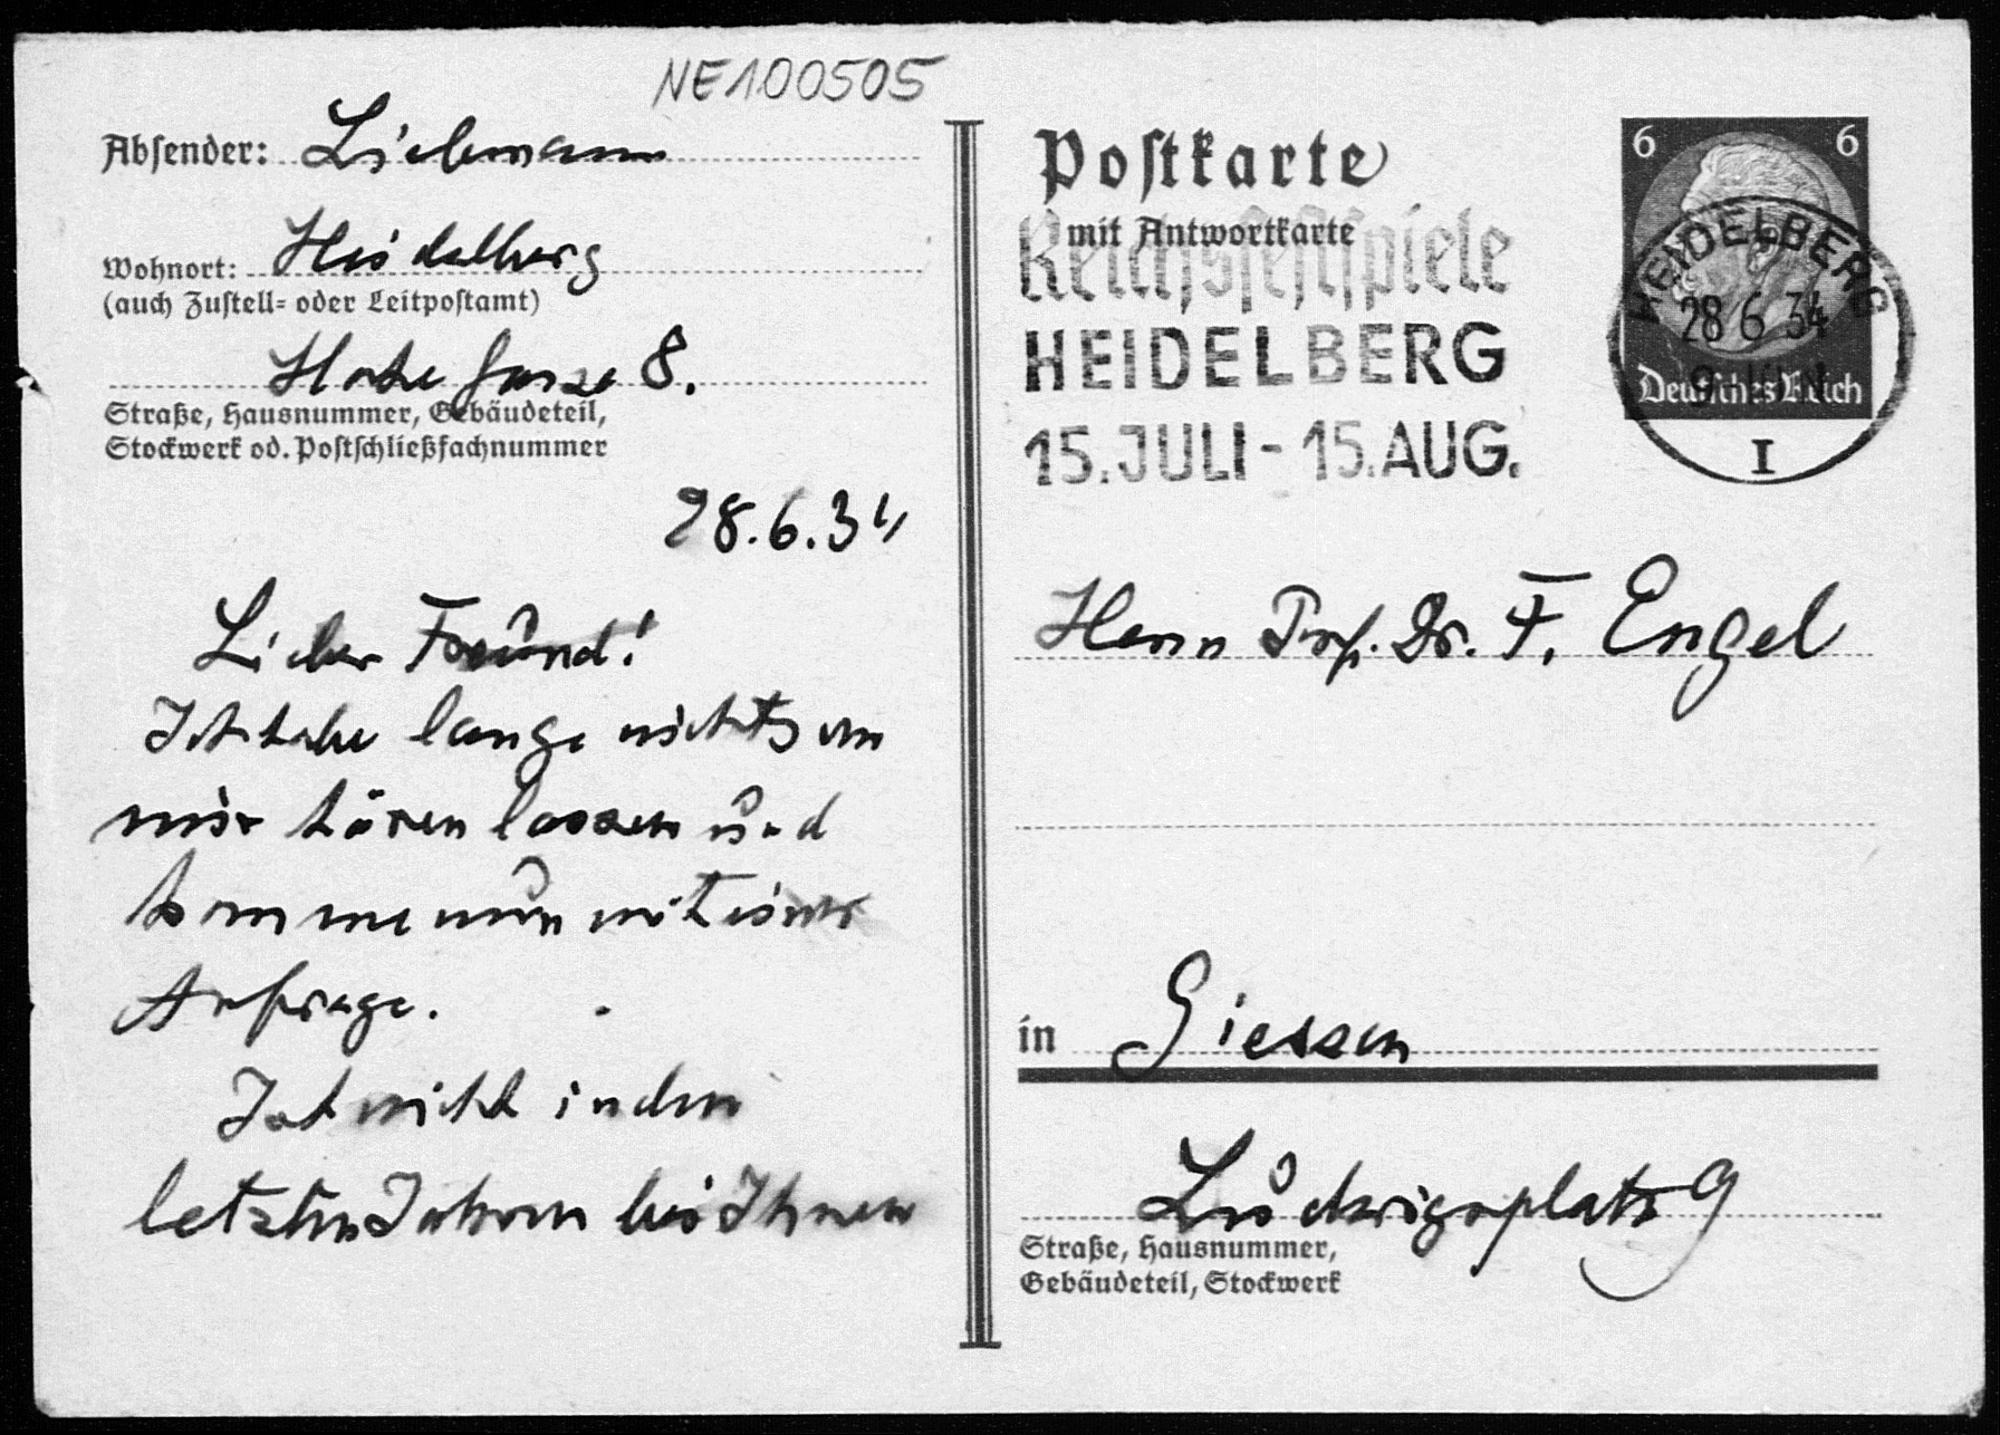 NE100505
Absender: Liebmann
Wohnort: Heidelberg
(auch Zustell= oder Leitpostamt)
Hohe Gasse 8.
Straße, Hausnummer, Gebäudeteil,
Stockwerk od. Postschließfachnummer
28.6.34
Lieber Freund!
Ich habe lange nichts von
mir hören lassen und
komme nun mit einer
Anfrage.
Ist nicht in den
letzten Jahren bei Ihnen
Postkarte
mit Antwortkarte
Reichsfestspiele
HEIDELBERG
15. JULI - 15. AUG.
6 6
HEIDELBERG
28 6 34
Deutsches Reich
I
Herrn Prof. Dr. F. Engel
in Giessen
Ludwigsplatz 9
Straße, Hausnummer,
Gebäudeteil, Stockwerk